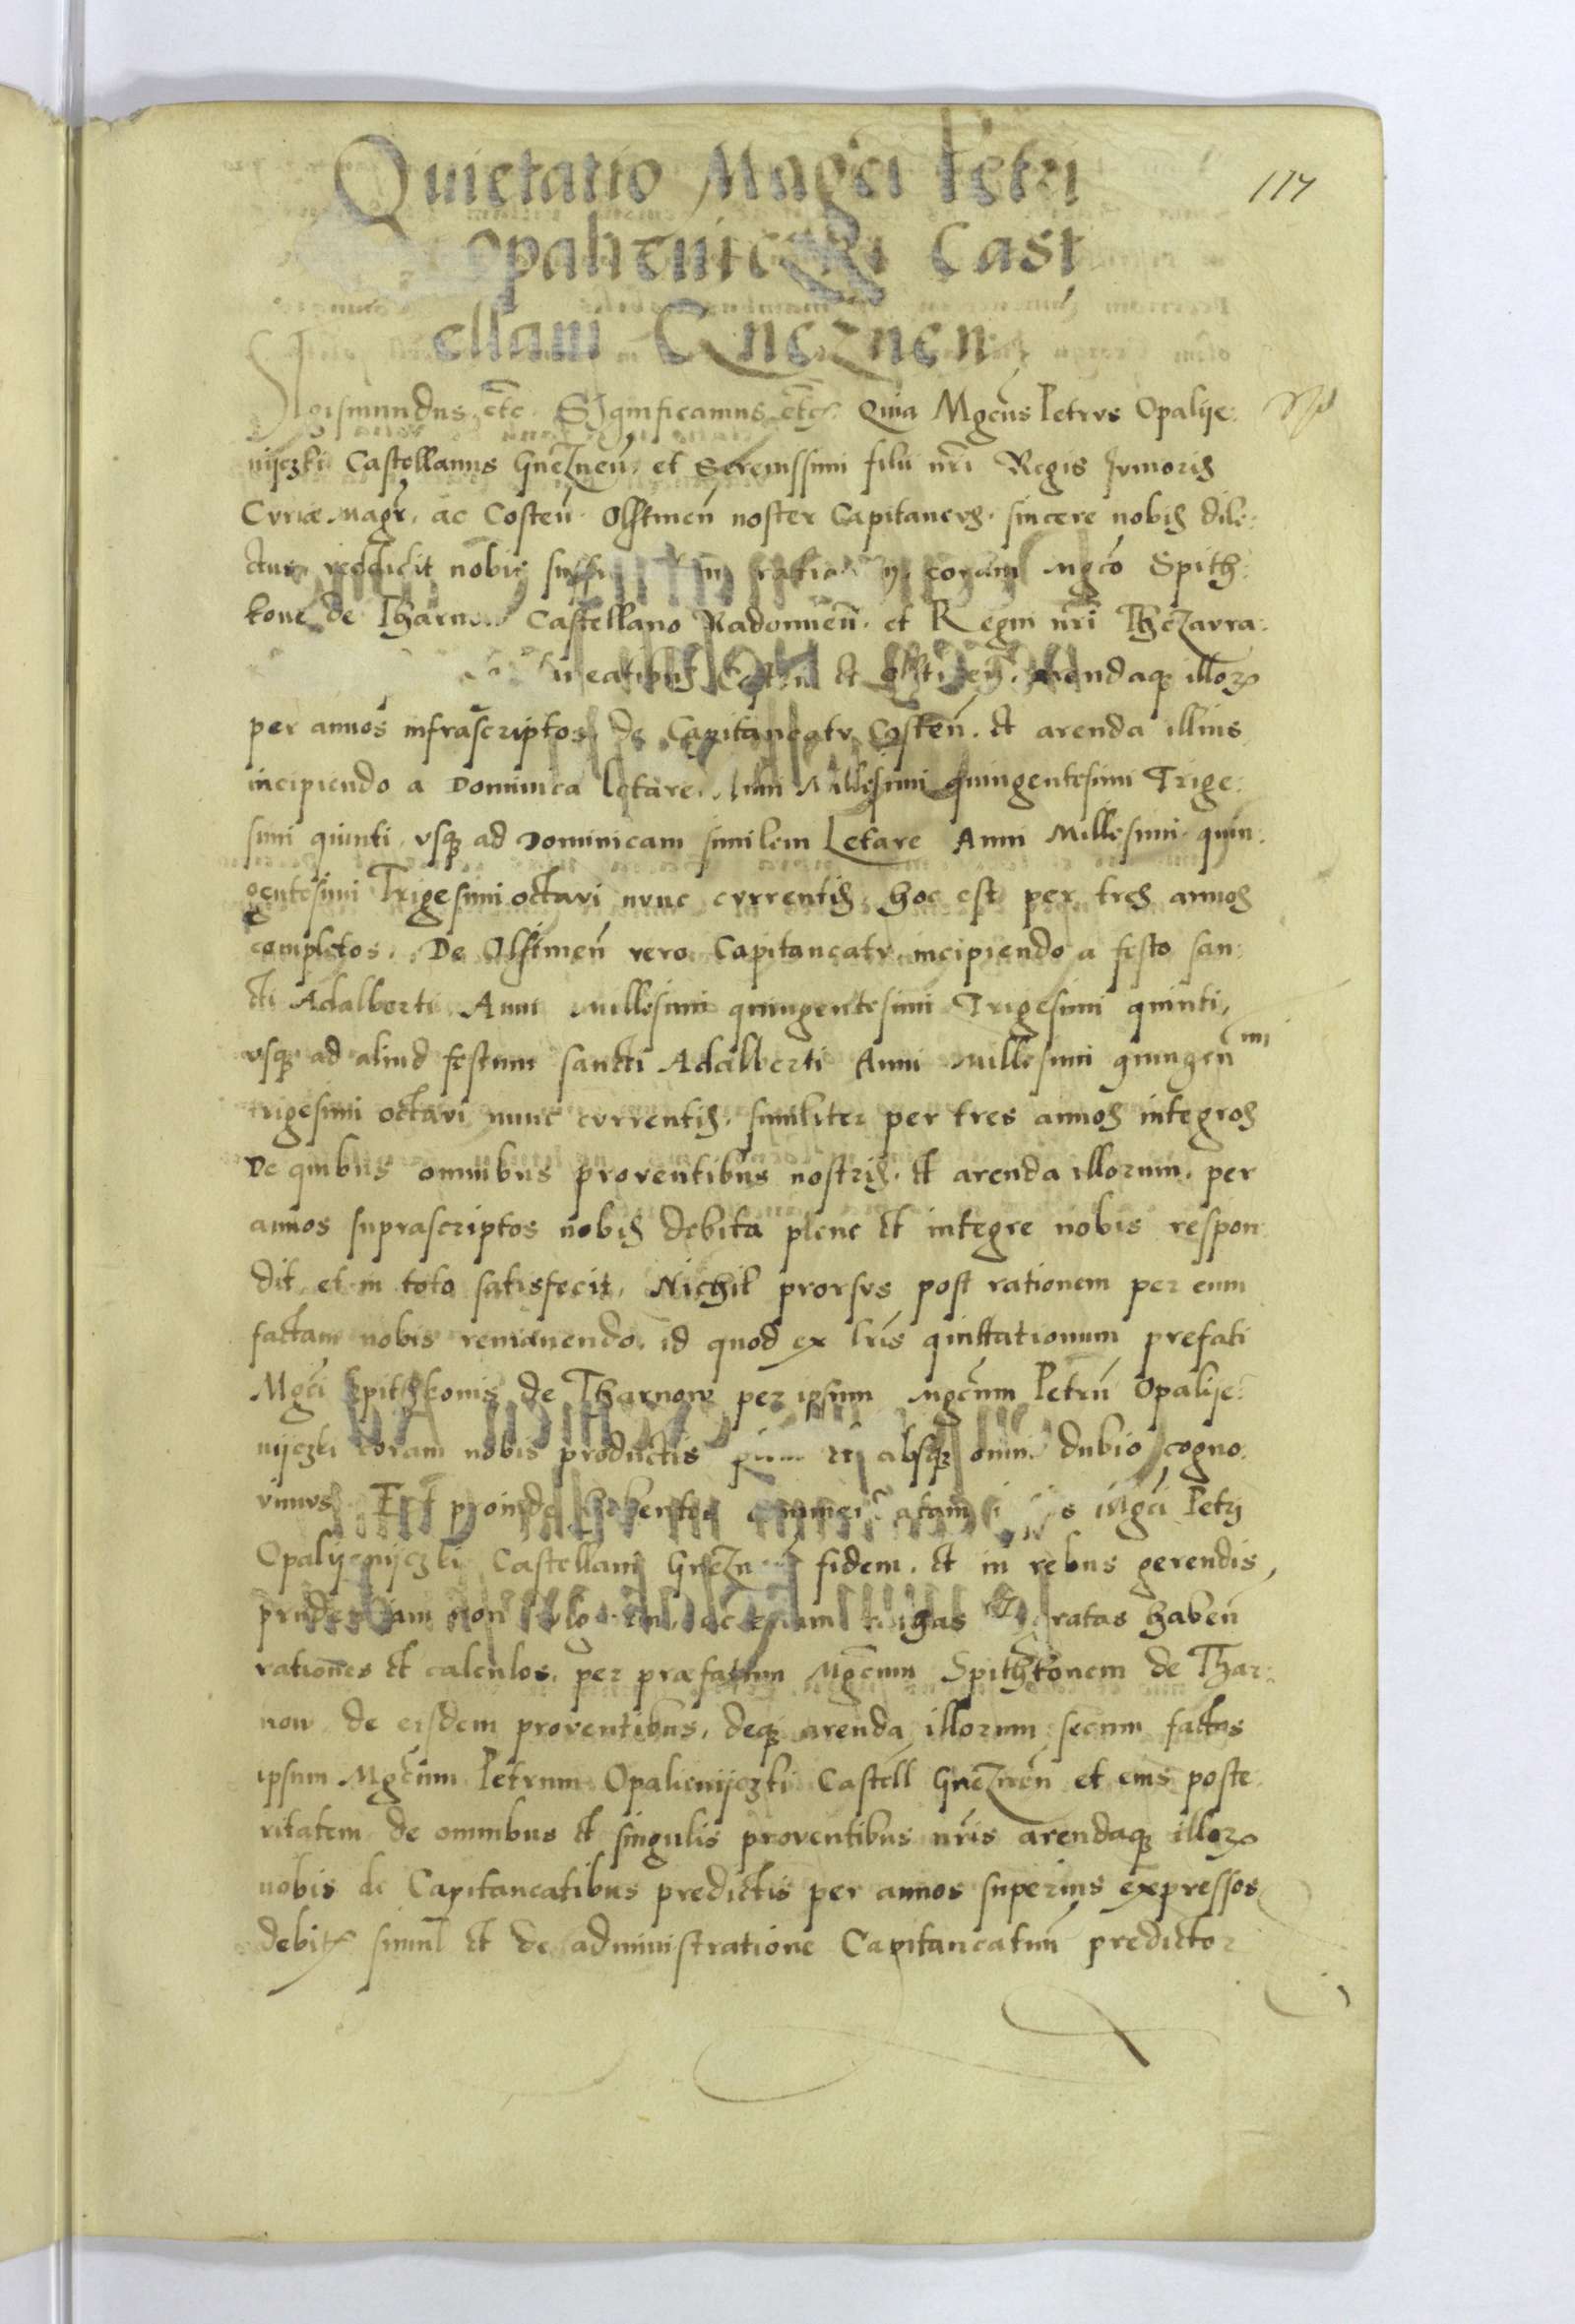 Quietatio Magci Petri
Opalieniczki Cast
ellani Gneznen
117
Sigismundus etc. Significamus etc. Quia Mgcus Petrus Opalije:
nijczki Castellanus Gneznen. et Serenissimi filii nri Regis Junioris
Curiæ magr. ac Costen. Olstinen noster Capitaneus. sincere nobis dile:
ctus, reddidit nobis coram Mgco Spith:
kone de Tharnow Castellano Radomien. et Regni nri Thezavra:
Costen et Olstinen. arendaq illorz
per annos infrascriptos, de Capitaneatv Costen. et arenda illius
incipiendo a Dominica Letare. Anni Millesimi quingentesimi Trige:
simi quinti. vsq ad Dominicam similem Letare Anni Millesimi quin:
gentesimi Trigesimi octavi nvnc cvrrentis hoc est per tres annos
completos. De Olstinen vero Capitaneatv incipiendo a festo san:
cti Adalberti Anni Millesimi quingentesimi Trigesimi quinti,
vsq ad aliud festum sancti Adalberti Anni Millesimi quingen
trigesimi octavi nunc cvrrentis. similiter per tres annos integros
De quibus omnibus proventibus nostris. et arenda illorum. per
annos suprascriptos nobis debita plene et integre nobis respon
dit et in toto satisfecit, Nichil prorsvs post rationem per eum
factam nobis remanendo. id quod ex lris quittationum prefati
Mgci Spithkonis de Tharnow per ipsum Mgcum Petru Opalije:
nijczki coram nobis productis absq omni dubio cogno:
vimvs. Et proinde habentes Mgci Petrj
Opalijenijczki Castellani Gnezn fidem. et in rebus gerendis,
prudentiam non ratas haben
rationes et calculos. per præfatum Mgcum Spithkonem de Thar:
now de eisdem proventibus, deq arenda illorum secum factas
ipsum Mgcum Petrum Opalienijczki Castell Gneznen et eius poste
ritatem de omnibus et singulis proventibus nris arendaq illorz
nobis de Capitaneatibus predictis per annos superius expressos
debitis simul et de administratione Capitaneatum predictor